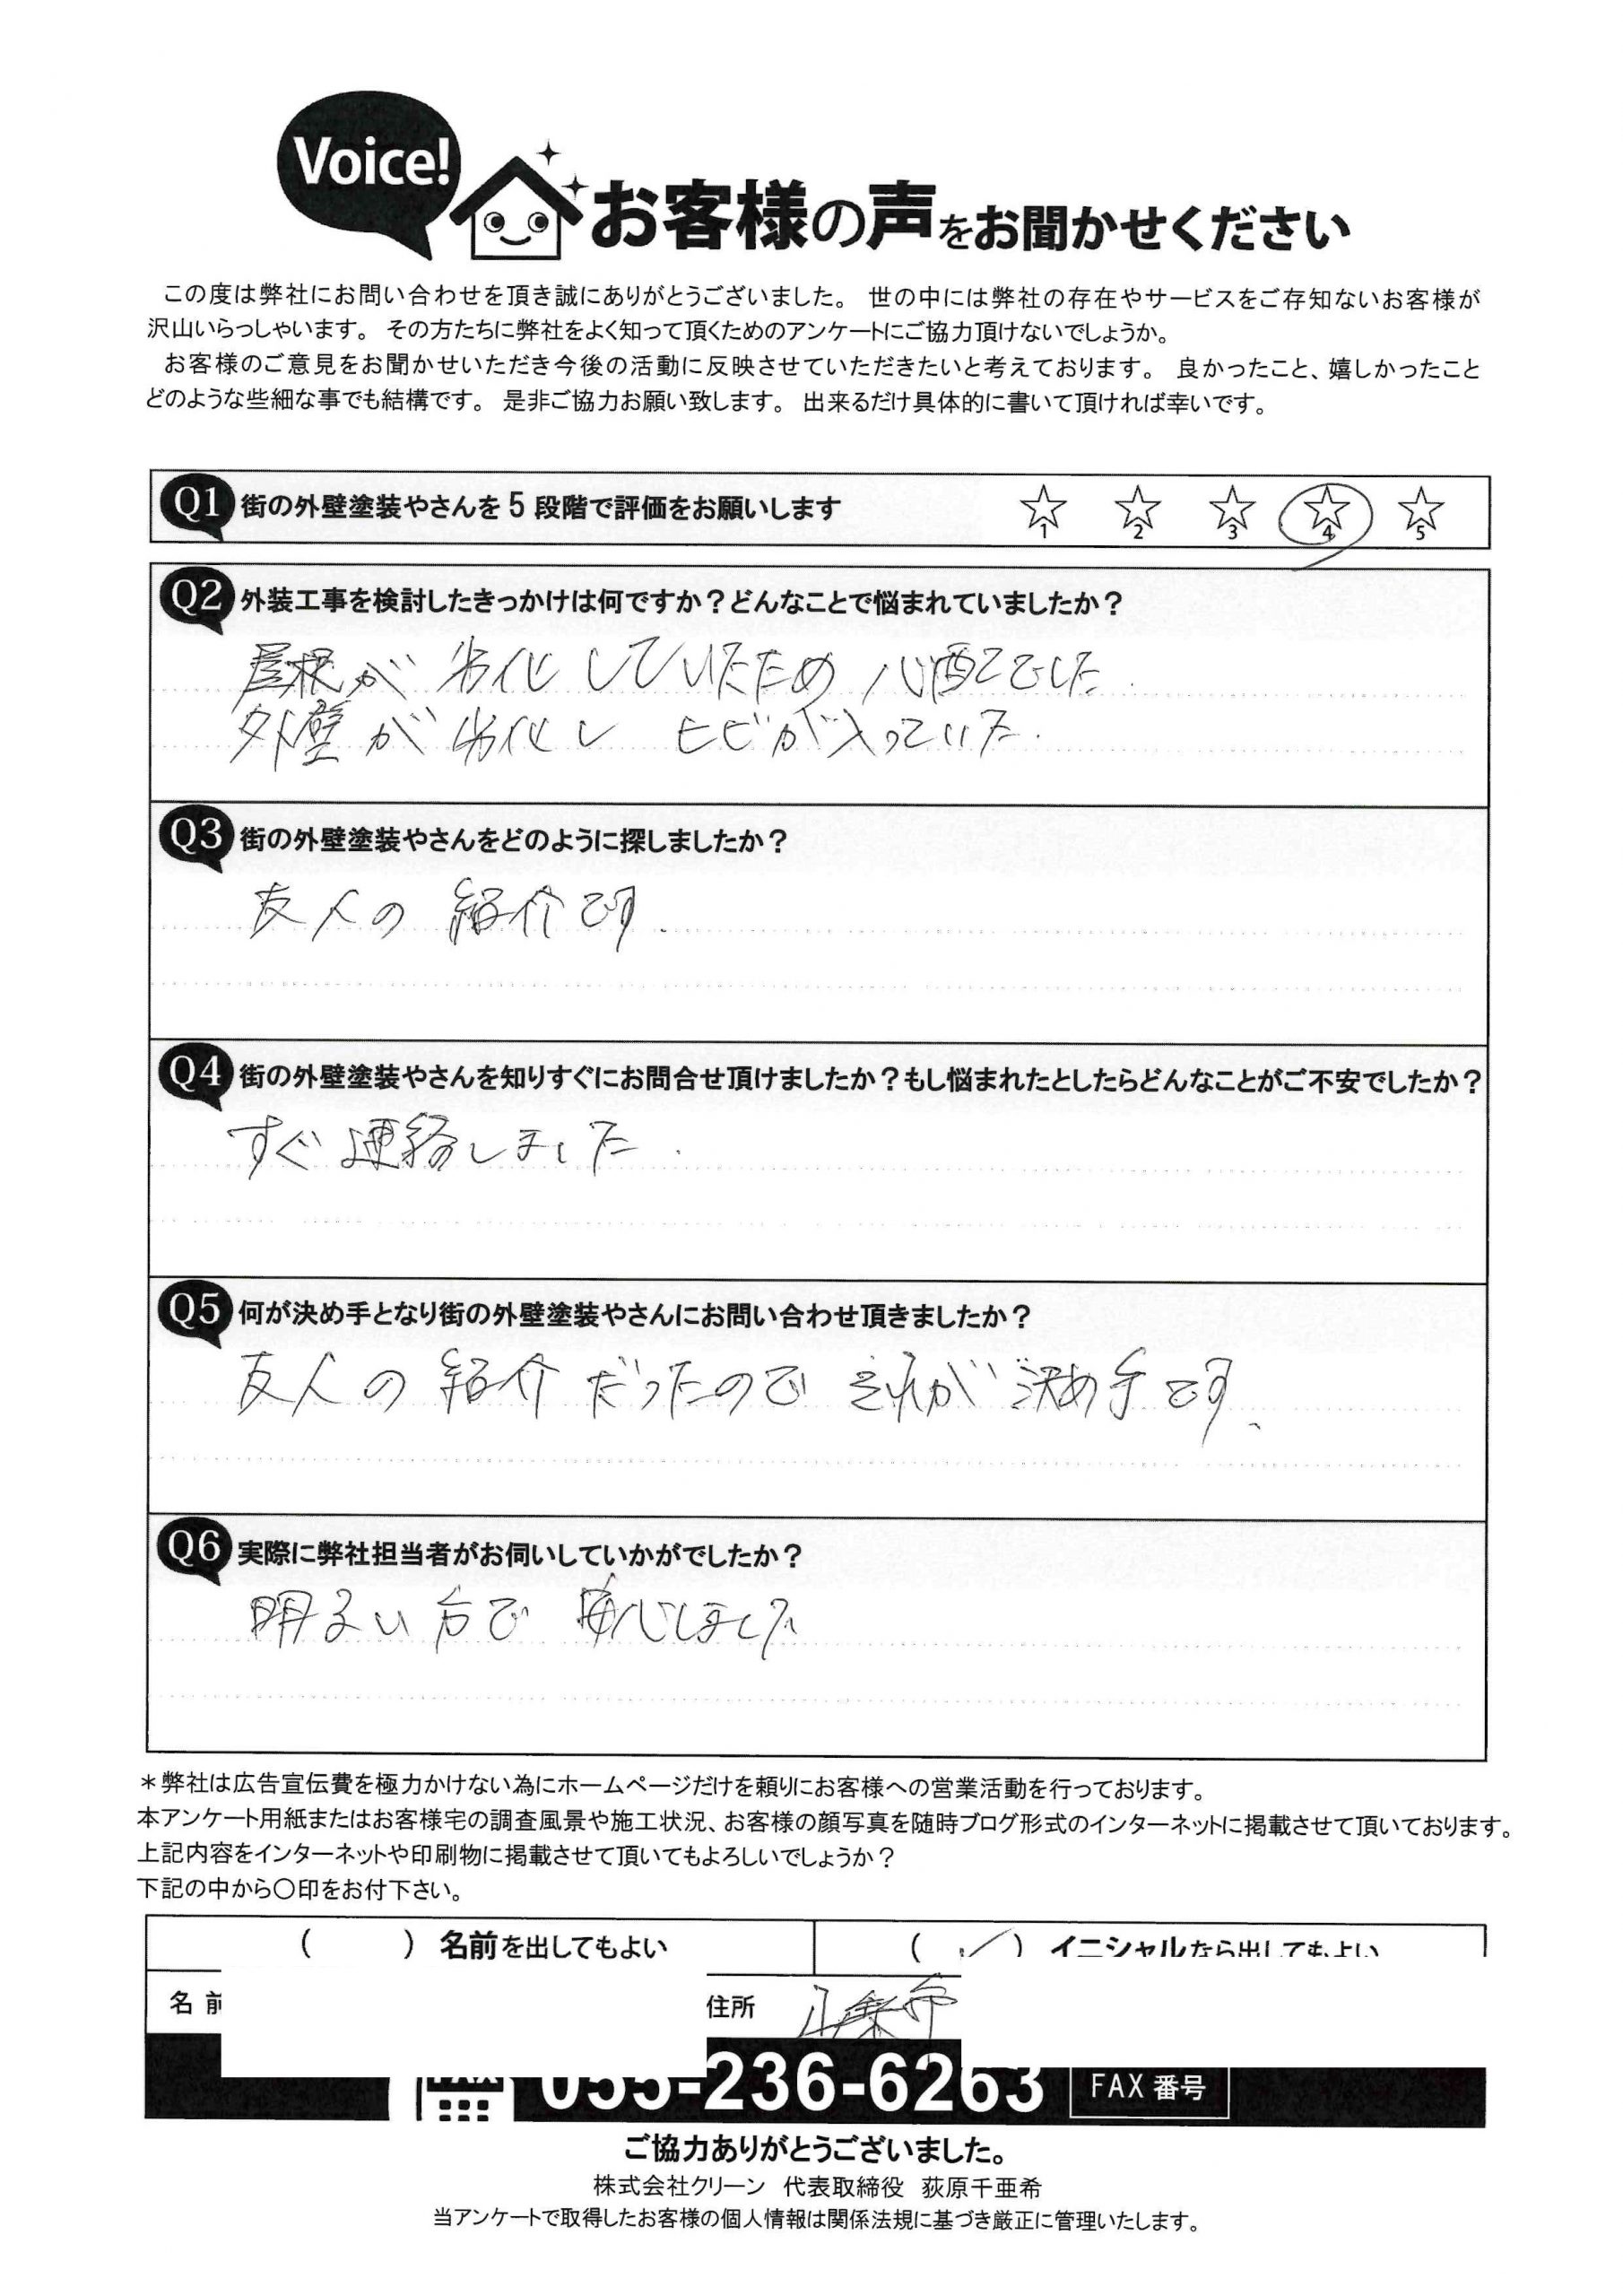 Voice!
お客様の声をお聞かせください
この度は弊社にお問い合わせを頂き誠にありがとうございました。 世の中には弊社の存在やサービスをご存知ないお客様が
沢山いらっしゃいます。 その方たちに弊社をよく知って頂くためのアンケートにご協力頂けないでしょうか。
お客様のご意見をお聞かせいただき今後の活動に反映させていただきたいと考えております。 良かったこと、嬉しかったこと
どのような些細な事でも結構です。 是非ご協力お願い致します。 出来るだけ具体的に書いて頂ければ幸いです。
Q1 街の外壁塗装やさんを5段階で評価をお願いします ☆1 ☆2 ☆3 ☆4 ☆5
Q2 外装工事を検討したきっかけは何ですか？どんなことで悩まれていましたか？
屋根が 劣化していたため 心配ででした.
外壁が 劣化し ヒビが入っていた.
Q3 街の外壁塗装やさんをどのように探しましたか？
友人の 紹介です.
Q4 街の外壁塗装やさんを知りすぐにお問合せ頂けましたか？もし悩まれたとしたらどんなことがご不安でしたか？
すぐ連絡しました.
Q5 何が決め手となり街の外壁塗装やさんにお問い合わせ頂きましたか？
友人の 紹介だったので それが決め手です、
Q6 実際に弊社担当者がお伺いしていかがでしたか？
明るい方で 安心しました
＊弊社は広告宣伝費を極力かけない為にホームページだけを頼りにお客様への営業活動を行っております。
本アンケート用紙またはお客様宅の調査風景や施工状況、お客様の顔写真を随時ブログ形式のインターネットに掲載させて頂いております。
上記内容をインターネットや印刷物に掲載させて頂いてもよろしいでしょうか？
下記の中から〇印をお付下さい。
( ) 名前を出してもよい ( ✓ ) イニシャルなら出してもよい
名前 住所
055-236-6263 FAX 番号
ご協力ありがとうございました。
株式会社クリーン 代表取締役 荻原千亜希
当アンケートで取得したお客様の個人情報は関係法規に基づき厳正に管理いたします。